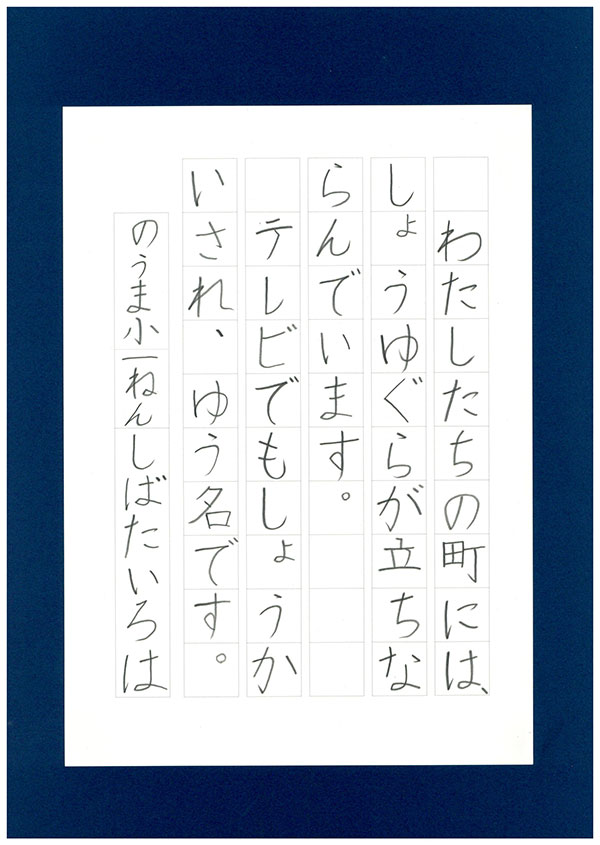 わたしたちの町には、
しょうゆぐらが立ちな
らんでいます。
テレビでもしょうか
いされ、ゆう名です。
のうま小一ねんしばたいろは